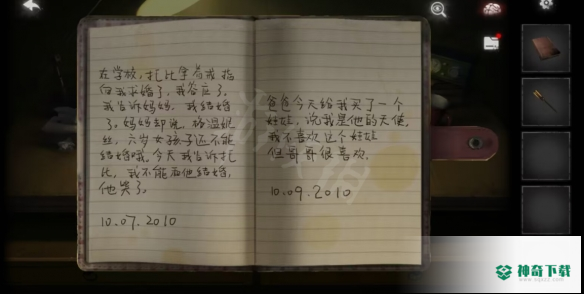 在学校,托比拿着戒指
向我求婚了,我答应了。
我告诉妈妈,我结婚
了。妈妈却说,格温妮
丝,六岁女孩子还不能
结婚哦。今天我告诉托
比,我不能而他结婚,
他哭了。
10.07.2010
爸爸今天给我买了一个
娃娃,说我是他的天使。
我不喜欢这个娃娃
但哥哥很喜欢.
10.09.2010
神奇下载